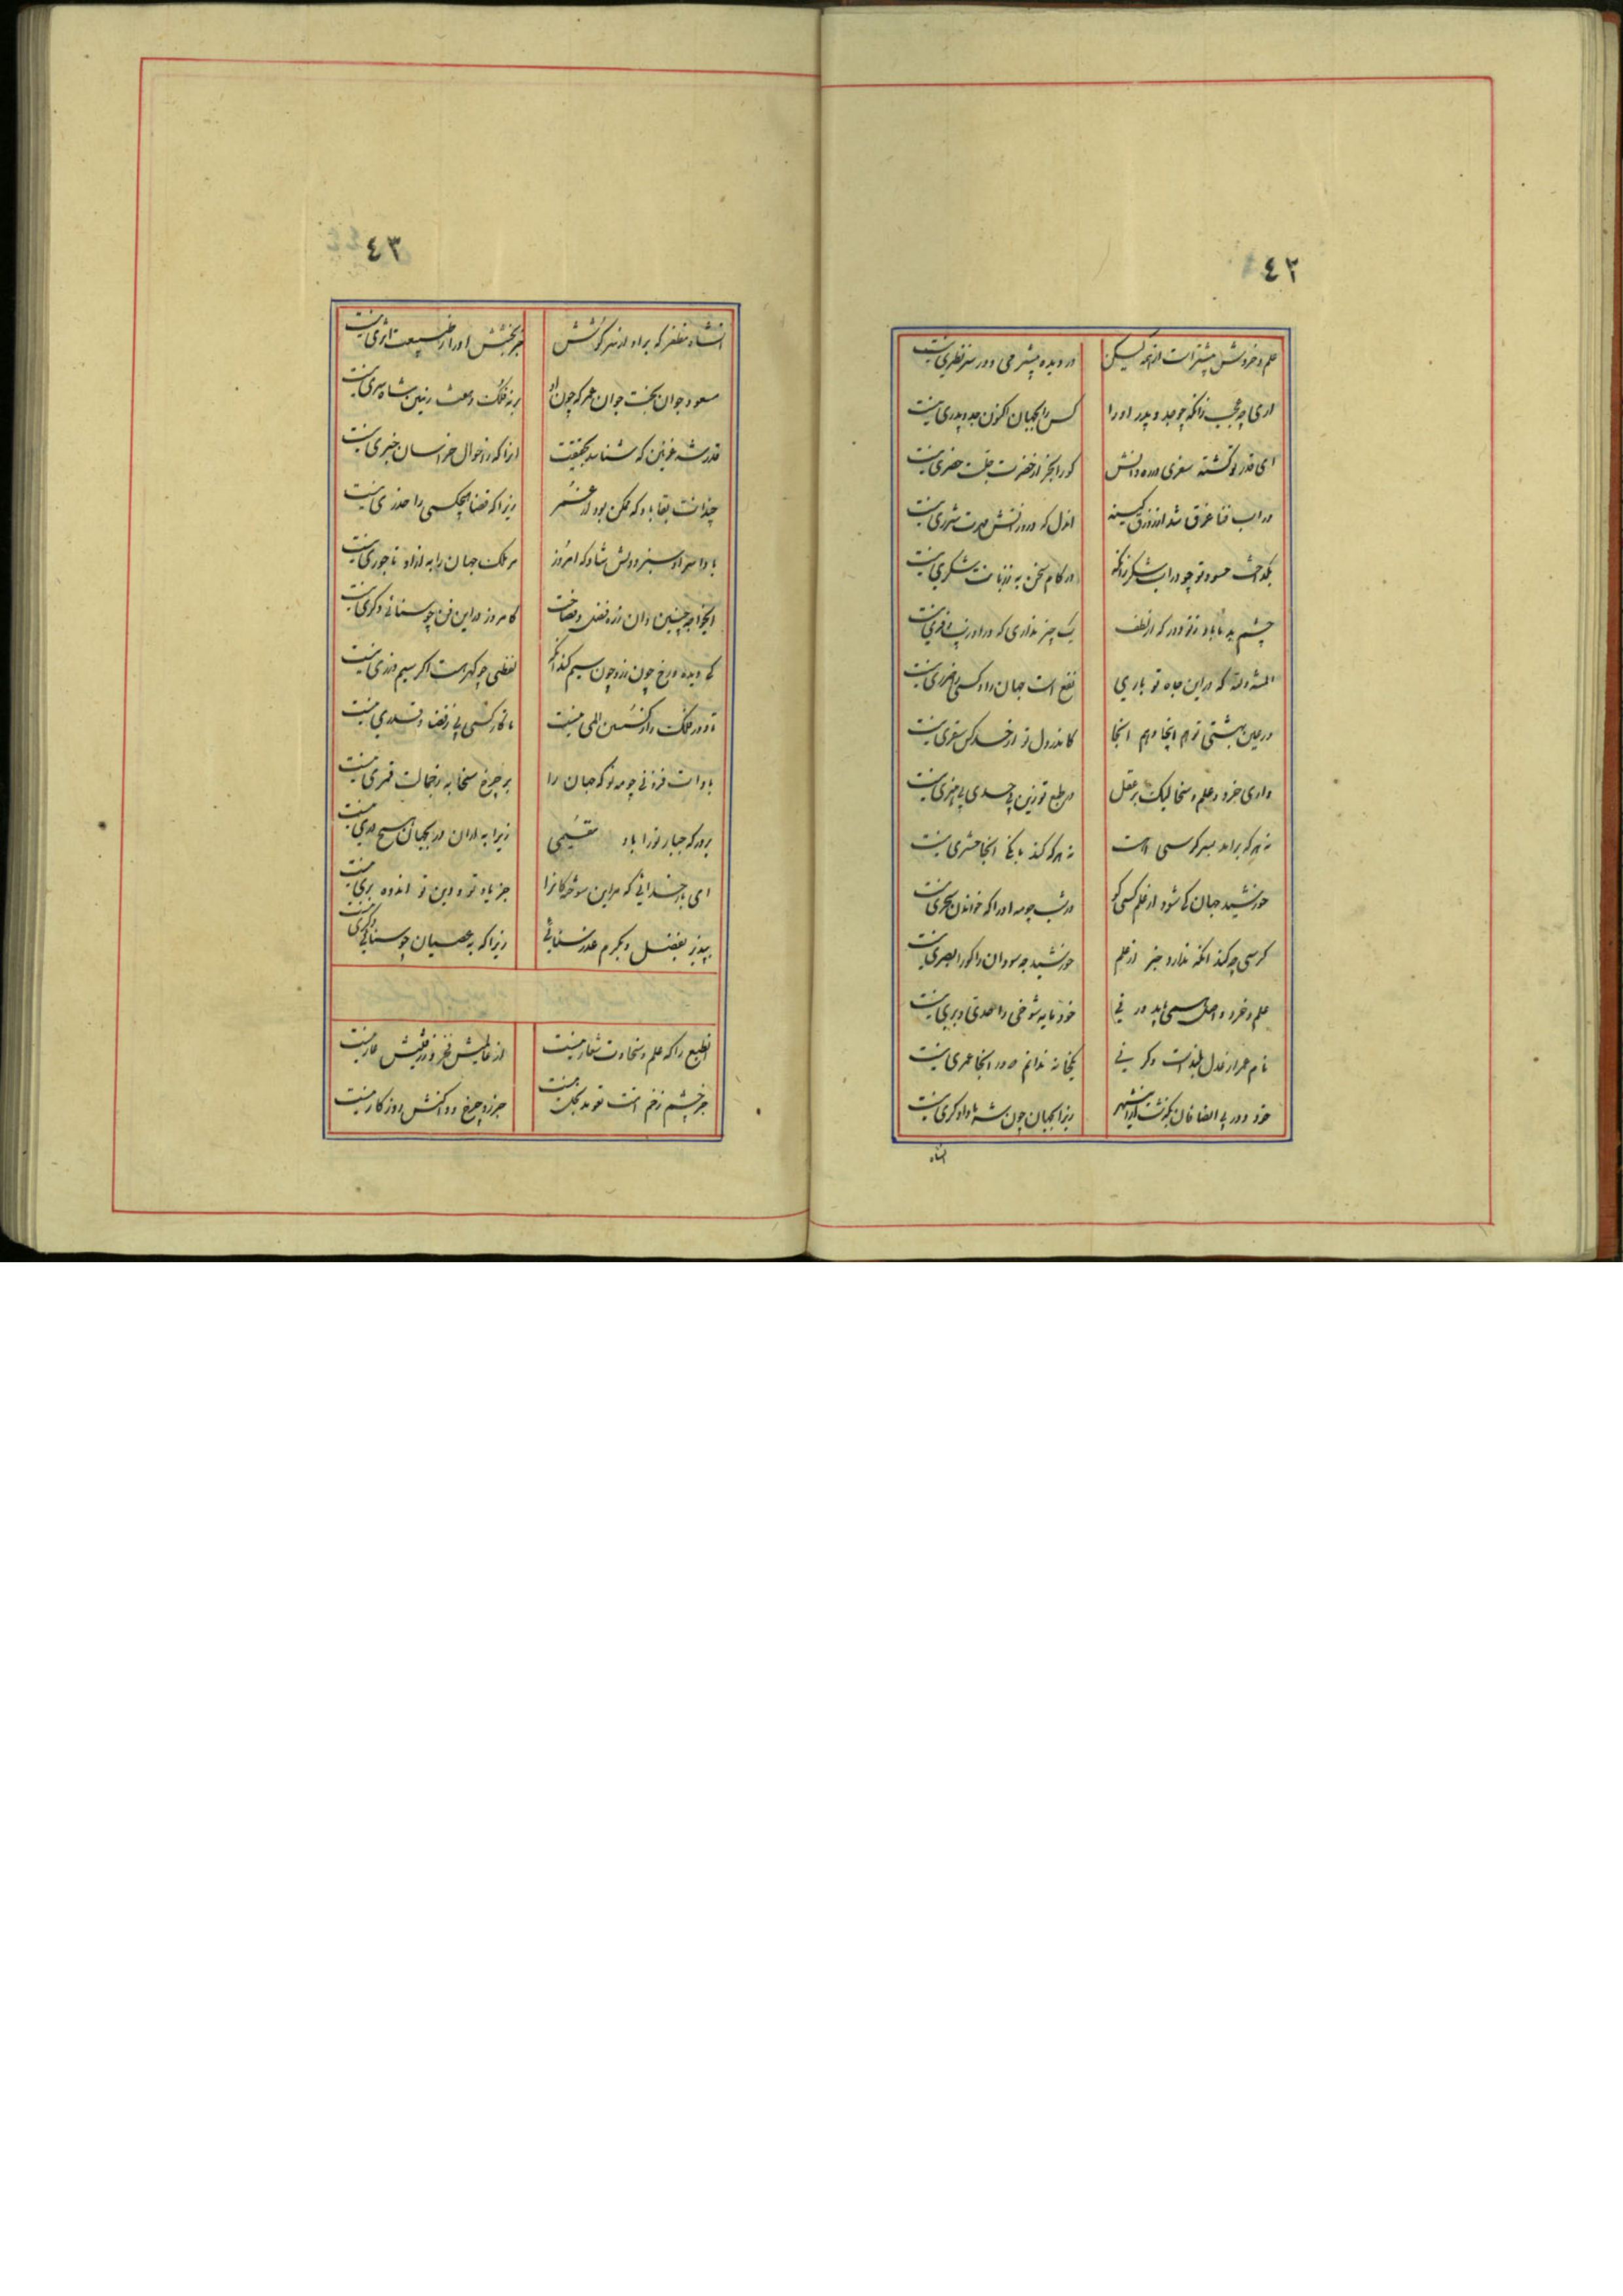 ٤٢
علم و خردش بیشتر است از همه لیکن در دیده بیشرمی و در سر نظری نیست
اری چه عجب زانکه چو جد و پدر او را کس را بجهان اکنون جد و پدری نیست
ای قدر تو گشته سفری در ره دانش کو را بجز از حضرت حضری نیست
در اب فنا غرق شد از زرق کسی اندل که درو زاتش مهرت شرری نیست
بگداخت حسود تو چو در اب شکر زانکه در کام سخن به ز زبانت شکری نیست
چشم بد ناباد ز تو دور که از لطف یک چیز نداری که در او زیب و فری نیست
المنة لله که در این جاه تو باری نفع است جهان را و کسی را ضرری نیست
در عین بهشتی تو هم اینجا و هم انجا کاندر دل تو از حسد کس سقری نیست
داری خرد و علم و سخا لیک بر عقل در طبع تو زین به حسدی بی هنری نیست
نه هر که براید بسر کرسی است نه هر که کند بانگ انجا حشری نیست
خورشید جهان کی شود از علم کسی کو در شب چو مه او را که خواندن سحری نیست
کرسی چه کند انکه ندارد خبر از علم خورشید چه سود ان را کو را بصری نیست
علم و خرد و اصل همی باید ور نی خود مایه شوخی را حدی و بری نیست
نام عمر از عدل بلند است وگر نی یکخانه ندانم که در انجا عمری نیست
خود دور بی انصافان بگذشت در این شهر زیرا بجهان چون شه ما دادگری نیست
انشاه
٤٣
انشاه مظفر که براو از هنر کوشش جز بخشش او را ز طبیعت اثری نیست
مسعود جوان بخت جوان عمر که چون او بر نه فلک و هشت زمین شاه سری نیست
قدر شه غزنین که شناسد بحقیقت انرا که ز احوال خراسان خبری نیست
چندانت بقا باد که ممکن بود از عمر زیرا که قضا هیچکسی را حذری نیست
بادا سر او سبز و دلش شاد که امروز مر ملک جهان را به از او تاجوری نیست
ایخواجه چنین دان ز ره فضل و فصاحت کامروز در این فن چو سنائی دگری نیست
کی دیده و رخ چون زر و چون سیم کند انکه لفظی چو گهر هست اگر سیم و زری نیست
تا دور فلک را ز کشتن المی نیست تا کار کسی بی ز قضا و قدری نیست
بادات فزونی چو مه نو که جهان را بر چرخ سخا به ز جمالت قمری نیست
بر درگه جبار تو را باد مقیمی زیرا به از ان در بجهان هیچ دری نیست
ای بار خدائی که مر این سوختگانرا جز یاد تو و دین تو اندوه بری نیست
بپذیر بفضل و بکرم عذر سنائی زیرا که به عصیان چو سنائی دگری نیست
انطبع را که علم و سخاوت شعار نیست از عالمیش فخر و ز زفتیش عار نیست
جز چشم زخم امت تعویذ بخل نیست جز رد چرخ و داکش روزگار نیست